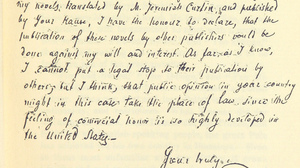 my novels translated by M. Jeremiah Curtin and published
by Your House, I have the honour to declare, that the
publication of these novels by other publishers would be
done against my will and interest. As far as I know,
I cannot put a legal stop to their publication by
others; but I think that public opinion in your country
might in this case take the place of law, since the
feeling of commercial honor is so highly developed in
the United States.—
Yours truly